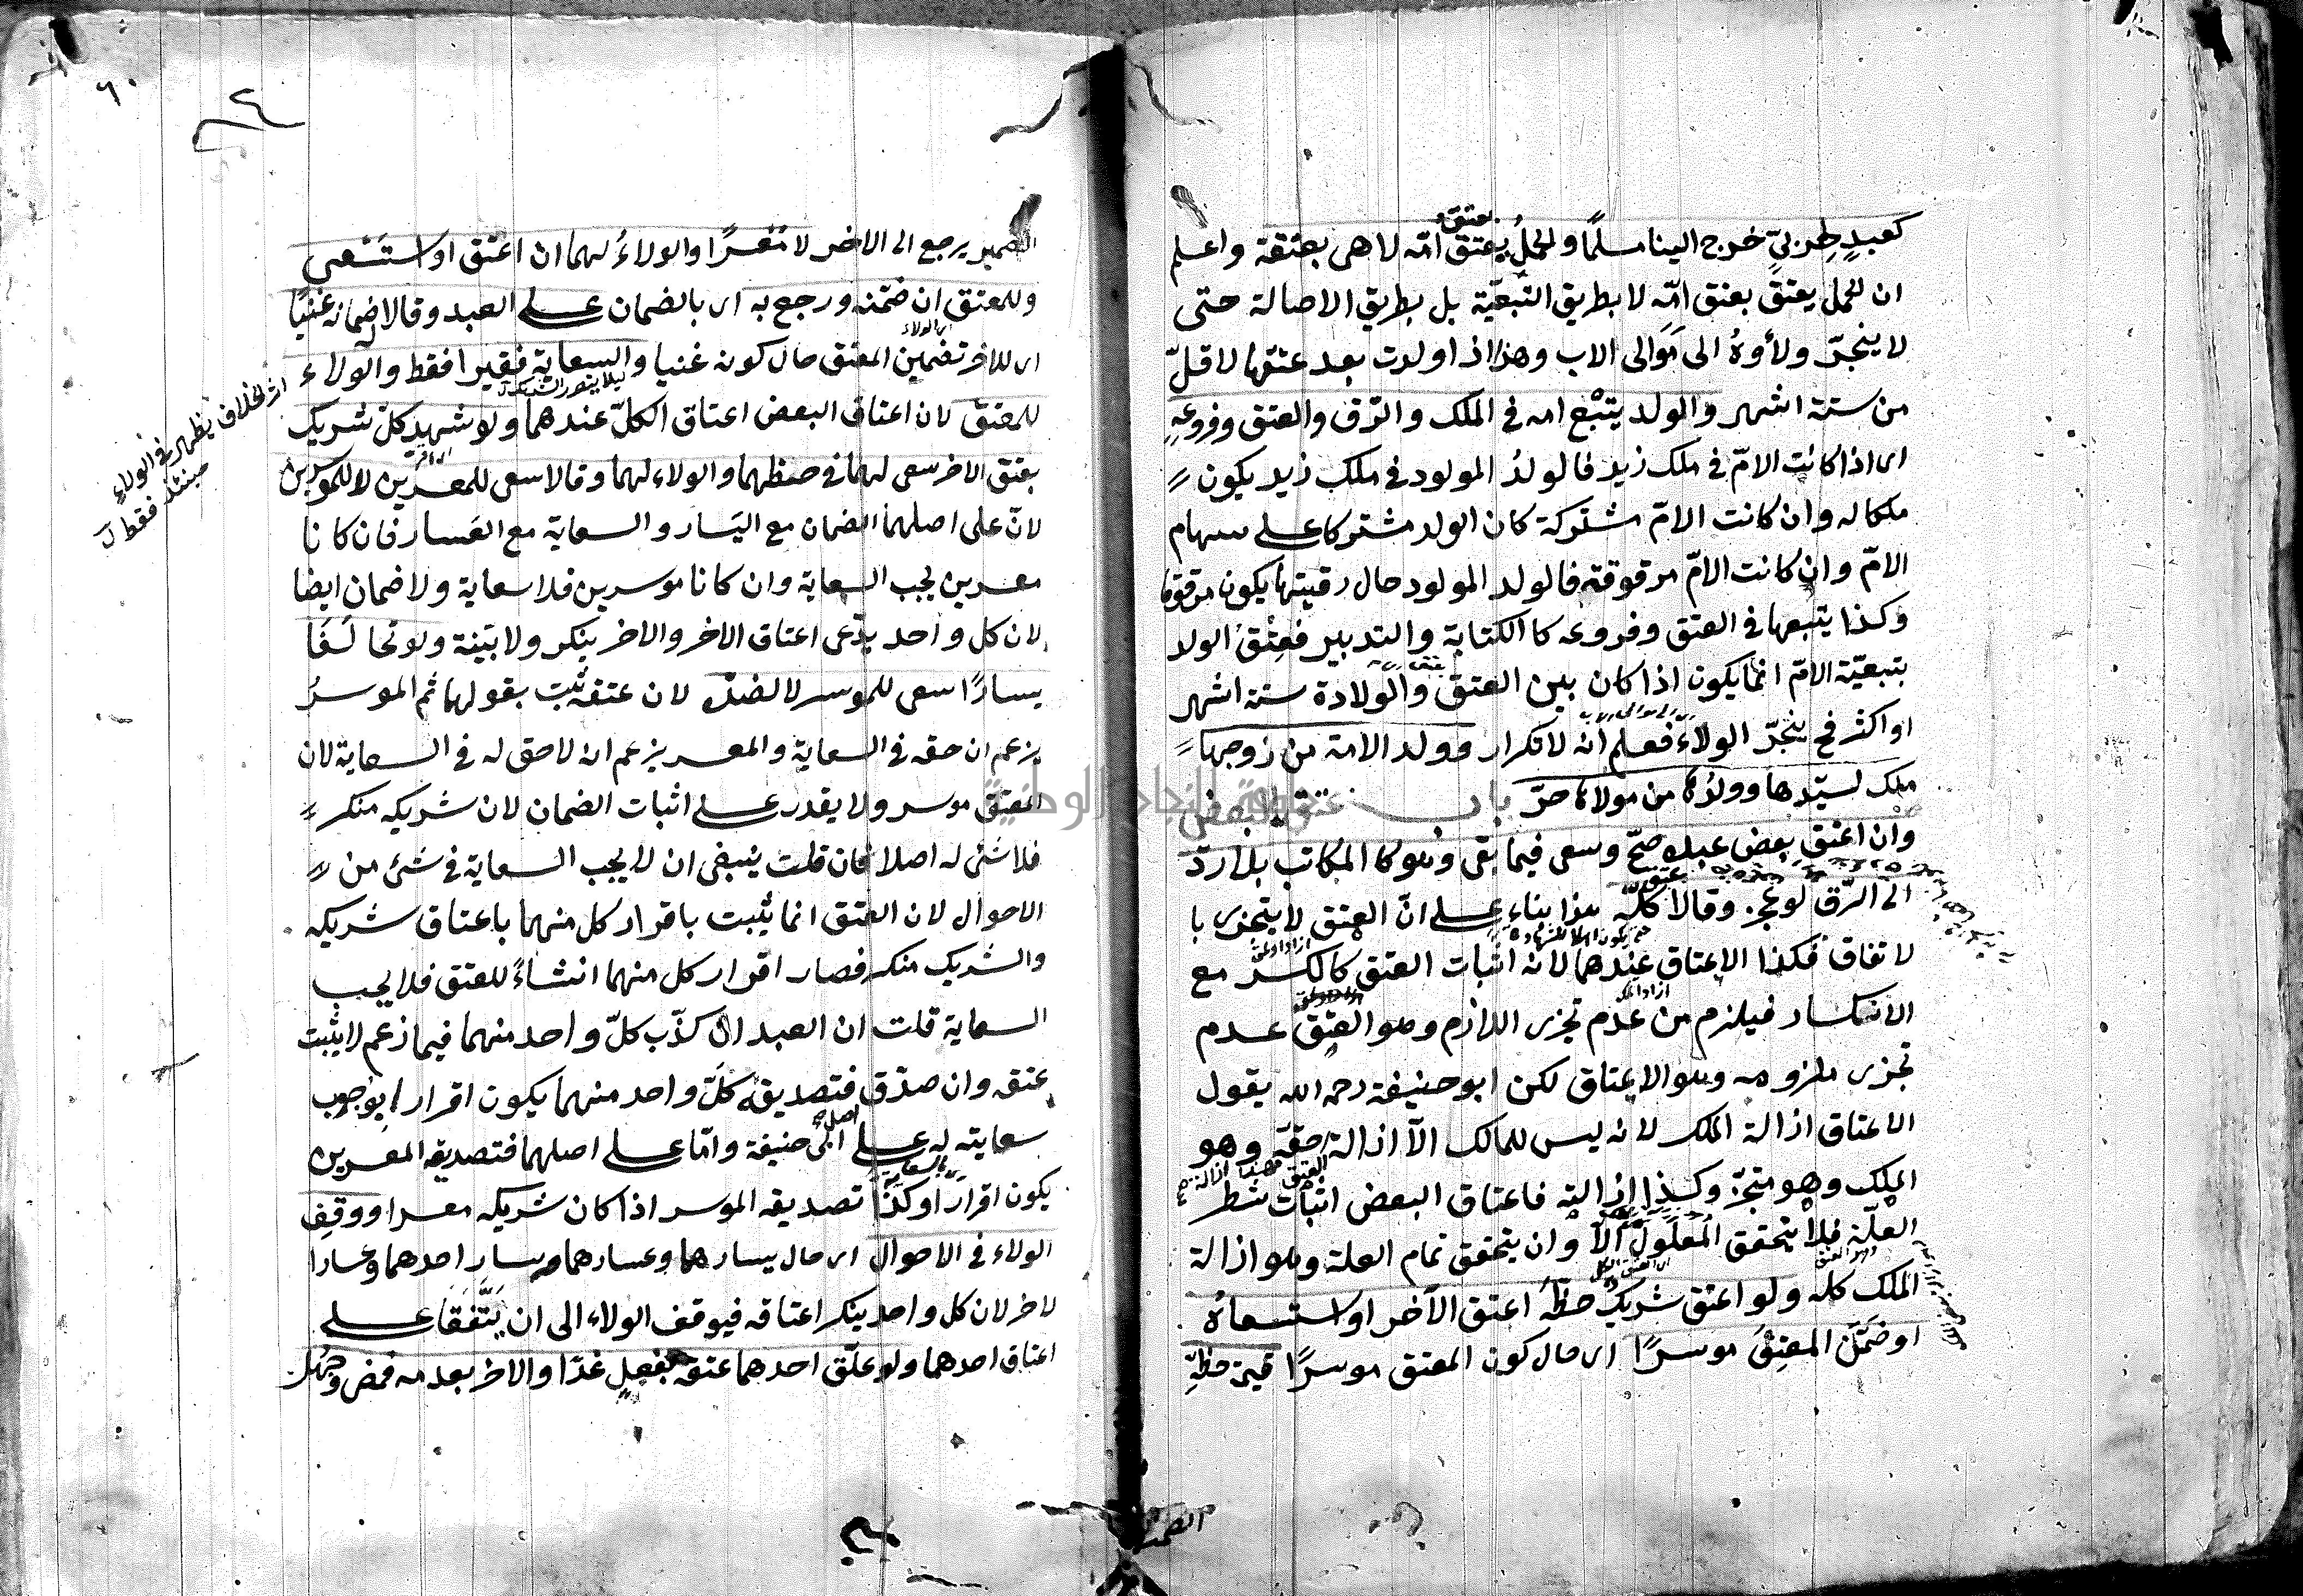 كعبدٍ حربيٍّ خرج الينا مسلمًا والحملُ يعتق امّه لا هى بعتقه واعلم
ان الحمل يعتق بعتق امّه لا بطريق التبعيّة بل بطريق الاصالة حتى
لا ينجرّ ولاؤهُ الى مَوَالى الاب وهذا اذا ولدت بعد عتقها لاقلّ
من ستة اشهر والولد يتبع امه فى الملك والرّق والعتق وفروعهِ
اى اذا كانت الامّ فى ملك زيد فالولدُ المولود فى ملك زيد يكون
ملكا له وان كانت الامّ مشتركة كان الولد مشتركا على سهام
الامّ وان كانت الامّ مرقوقة فالولد المولود حال رقيتها يكون مرقوقا
وكذا يتبعها فى العتق وفروعه كالكتابة والتدبير فعِتْقُ الولد
بتبعيّة الامّ انما يكون اذا كان بين العتق والولادة ستة اشهر
او اكثر فح ينجرّ الولاء فعلم انه لا تكرار وولد الامة من زوجها
ملك لسيّدها وولدُها من مولاها حرّ باب عتق البعض
وان اعتق بعض عبده صحّ وسعى فيما بقى وهو كالمكاتب بلا ردّ
الى الرّق لو عجز وقالا كلّه هذا بناء على انّ العتق لا يتجزى با
لاتفاق فكذا الاعتاق عندهما لانه اثبات العتق كالكسر مع
الانكسار فيلزم من عدم تجزى اللازم وهو العتق عدم
تجزى ملزومه وهو الاعتاق لكن ابو حنيفة رحمه الله يقول
الاعتاق ازالة الملك لانه ليس للمالك الّا ازالة حقّه وهو
الملك وهو متجزّ وكذا ازالته فاعتاق البعض اثبات شطر
العلّة فلا يتحقق المعلول الّا وان يتحقق تمام العلة وهو ازالة
الملك كله ولو اعتق شريكٌ حظّهُ اعتق الآخر او استسعاهُ
او ضَمَّنَ المعتِقَ موسرًا اى حال كون المعتق موسرًا قيمة حظّهِ
٦٠
الضمير يرجع الى الاخر لا مُعْسِرًا والولاءُ لهما ان اعتق او استَسْعى
وللمعتق ان ضمّنه ورجع به اى بالضمان على العبد وقالا له ضمانه غنيًا
اى للاخر تضمين المعتق حال كونه غنيا والسعاية فقيرا فقط والولاء
للمعتق لان اعتاق البعض اعتاق الكلّ عندهما ولو شهد كلّ شريك
بعتق الاخر سعى لهما فى حظهما والولاء لهما وقالا سعى للمعسرين لا للموسرين
لانّ على اصلهما الضمان مع اليَسار والسعاية مع العَسار فان كانا
معسرين يجب السعاية وان كانا موسرين فلا سعاية ولا ضمان ايضا
لان كل واحد يدّعى اعتاق الاخر والاخر ينكر ولا بيّنة ولو تخالفا
يسارًا سعى للموسر لا لضدّه لان عتقه ثبت بقولهما ثم الموسرُ
يزعم ان حقه فى السعاية والمعسر يزعم ان لا حق له فى السعاية لان
المعتق موسر ولا يقدر على اثبات الضمان لان شريكه منكر
فلا شئ له اصلا فان قلت ينبغى ان لا يجب السعاية فى شئ من
الاحوال لان العتق انما يثبت باقرار كل منهما باعتاق شريكه
والشريك منكر فصار اقرار كل منهما انشاءً للعتق فلا يجب
السعاية قلت ان العبد ان كذّب كلّ واحد منهما فيما زعم لا يثبت
عتقه وان صدّق فتصديقه كلّ واحد منهما يكون اقرارا بوجوب
سعايته له على اصل ابى حنيفة وامّا على اصلهما فتصديقه المعسرين
يكون اقرارا وكذا تصديقه الموسر اذا كان شريكه معسرا ووقِف
الولاء فى الاحوال اى حال يسارهما وعسارهما ويسار احدهما وعسار ا
لاخر لان كل واحد ينكر اعتاقه فيوقف الولاء الى ان يَتَّفَقَا على
اعتاق احدهما ولو علّق احدهما عتقه بفعلٍ غدًا والاخر بعدمه فمضى وجُهل
اثر الخلاف يظهر فى الولاءِ
فقط